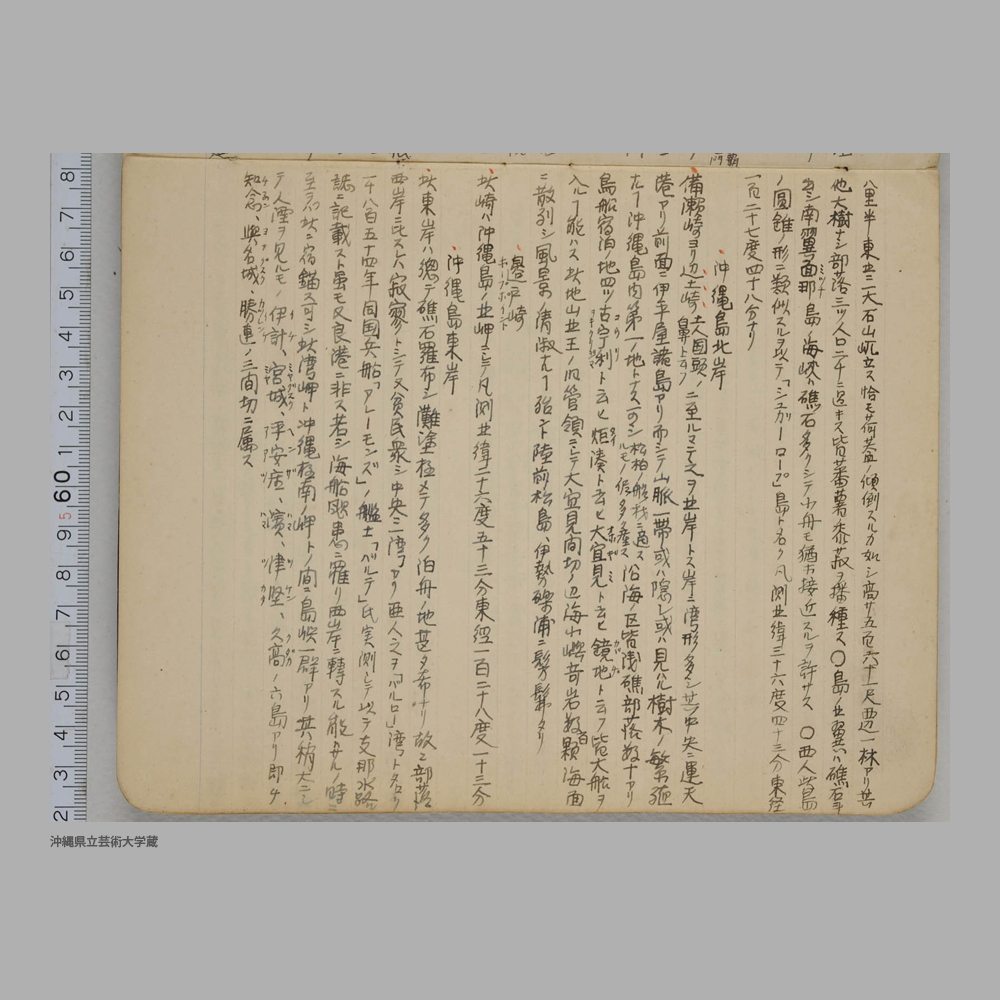 八里半東央ニ大石山屹立ス恰モ荷蓋ノ傾倒スルカ如シ高サ五百六十一尺西辺一林アリ其
他大樹ナシ部落三ツ人口二千ニ過キス皆蕃薯黍菽ヲ播種ス〇島ノ北翼ハ礁石
シ南翼面那島ノ海峡礁石多クシテ小舟モ猶ホ接近スルヲ許サス〇西人此島
ノ圓錐ノ形ニ類似スルヲ以テ「シュガーローフ」島ト名ク凡測北緯二十六度四十三分東経
一百二十七度四十八分ナリ
沖縄島北岸
備瀬崎ヨリ辺土崎 又国頭ノ鼻トモ云フ ニ至ルマテ之ヲ北岸トス岸ニ湾形多シ其中央ニ運天
港アリ前面ニ伊平屋諸島アリ而シテ山脈一帯或ハ隠レ或ハ見ハル樹木ノ繁殖
ナル沖縄島内第一ノ地トナス可シ 松柏ノ船材ニ適スルモノ多ク産ス 沿海ノ区皆浅礁部落数十アリ
島船宿泊ノ地四ツ古宇利ト云ヒ炬湊ト云ヒ大宜見ト云ヒ鏡地ト云フ皆大船ヲ
入ルヽ能ハス此地山北王ノ旧管領ニシテ大宜見間切ノ辺海小嶼奇岩数百顆海面
ニ散列シ風景ノ清淑ナル殆ント陸前松島、伊勢礫浦ニ髣髴タリ
邊戸崎
ホープポイント
此崎ハ沖縄島ノ北岬ニシテ凡測北緯二十六度五十三分東経一百二十八度一十三分
沖縄島東岸
此東岸ハ總テ礁石羅布シ難塗極メテ多ク泊舟ノ地甚タ希ナリ故ニ部落
西岸ニ比スレハ寂寥トシテ又貧民衆シ中央ニ湾アリ西人之ヲ「バルロー」湾ト名ク
一千八百五十四年同国兵船「アレーモンズ」ノ艦士「バルテ」氏実測シテ以テ支那水路
誌ニ記載スト虽モ又良港ニ非ス若シ海船颶患ニ罹リ西岸ニ轉スル能ハサルノ時ニ
至ラハ此ニ宿錨ス可シ此湾岬ト沖縄極南ノ岬トノ間ニ島嶼一群アリ其稍大ニシ
テ人煙ヲ見ルモノ伊計、宮城、平安座、濱、津堅、久高ノ六島アリ即チ
知念、與名城、勝連ノ三間切ニ属ス
8 7 6 5 4 3 2 1 60 9 8 7 6 5 4 3 2
沖縄県立芸術大学蔵